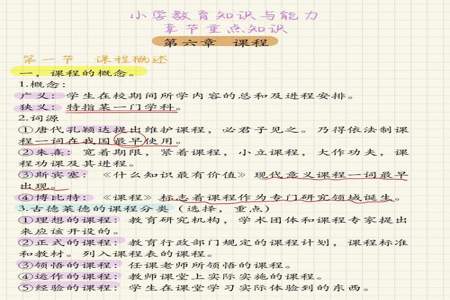 小学教育知识与能力
章节重点知识
第六章 课程
第一节 课程概述
一，课程的概念。
1.概念：
广义：学生在校期间所学内容的总和及进程安排。
狭义：特指某一门学科。
2.词源
①唐代孔颖达提出维护课程，必君子见之。乃得依法制课
程一词在我国最早使用。
②朱熹：宽着期限，紧着课程，小立课程，大作功夫，课
程功课及其进程。
③斯宾塞：《什么知识最有价值》现代意义课程一词最早
出现。
④博比特：《课程》标志着课程作为专门研究领域诞生。
3.古德莱德的课程分类（选择，重点）
①理想的课程：教育研究机构，学术团体和课程专家提出
来应该开设的。
②正式的课程：教育行政部门规定的课程计划，课程标准
和教材。列入课程表的课程。
③领悟的课程：任课老师所领悟的课程。
④运作的课程：教师课堂上实际实施的课程。
⑤经验的课程：学生在课堂学习实际体验到的东西。